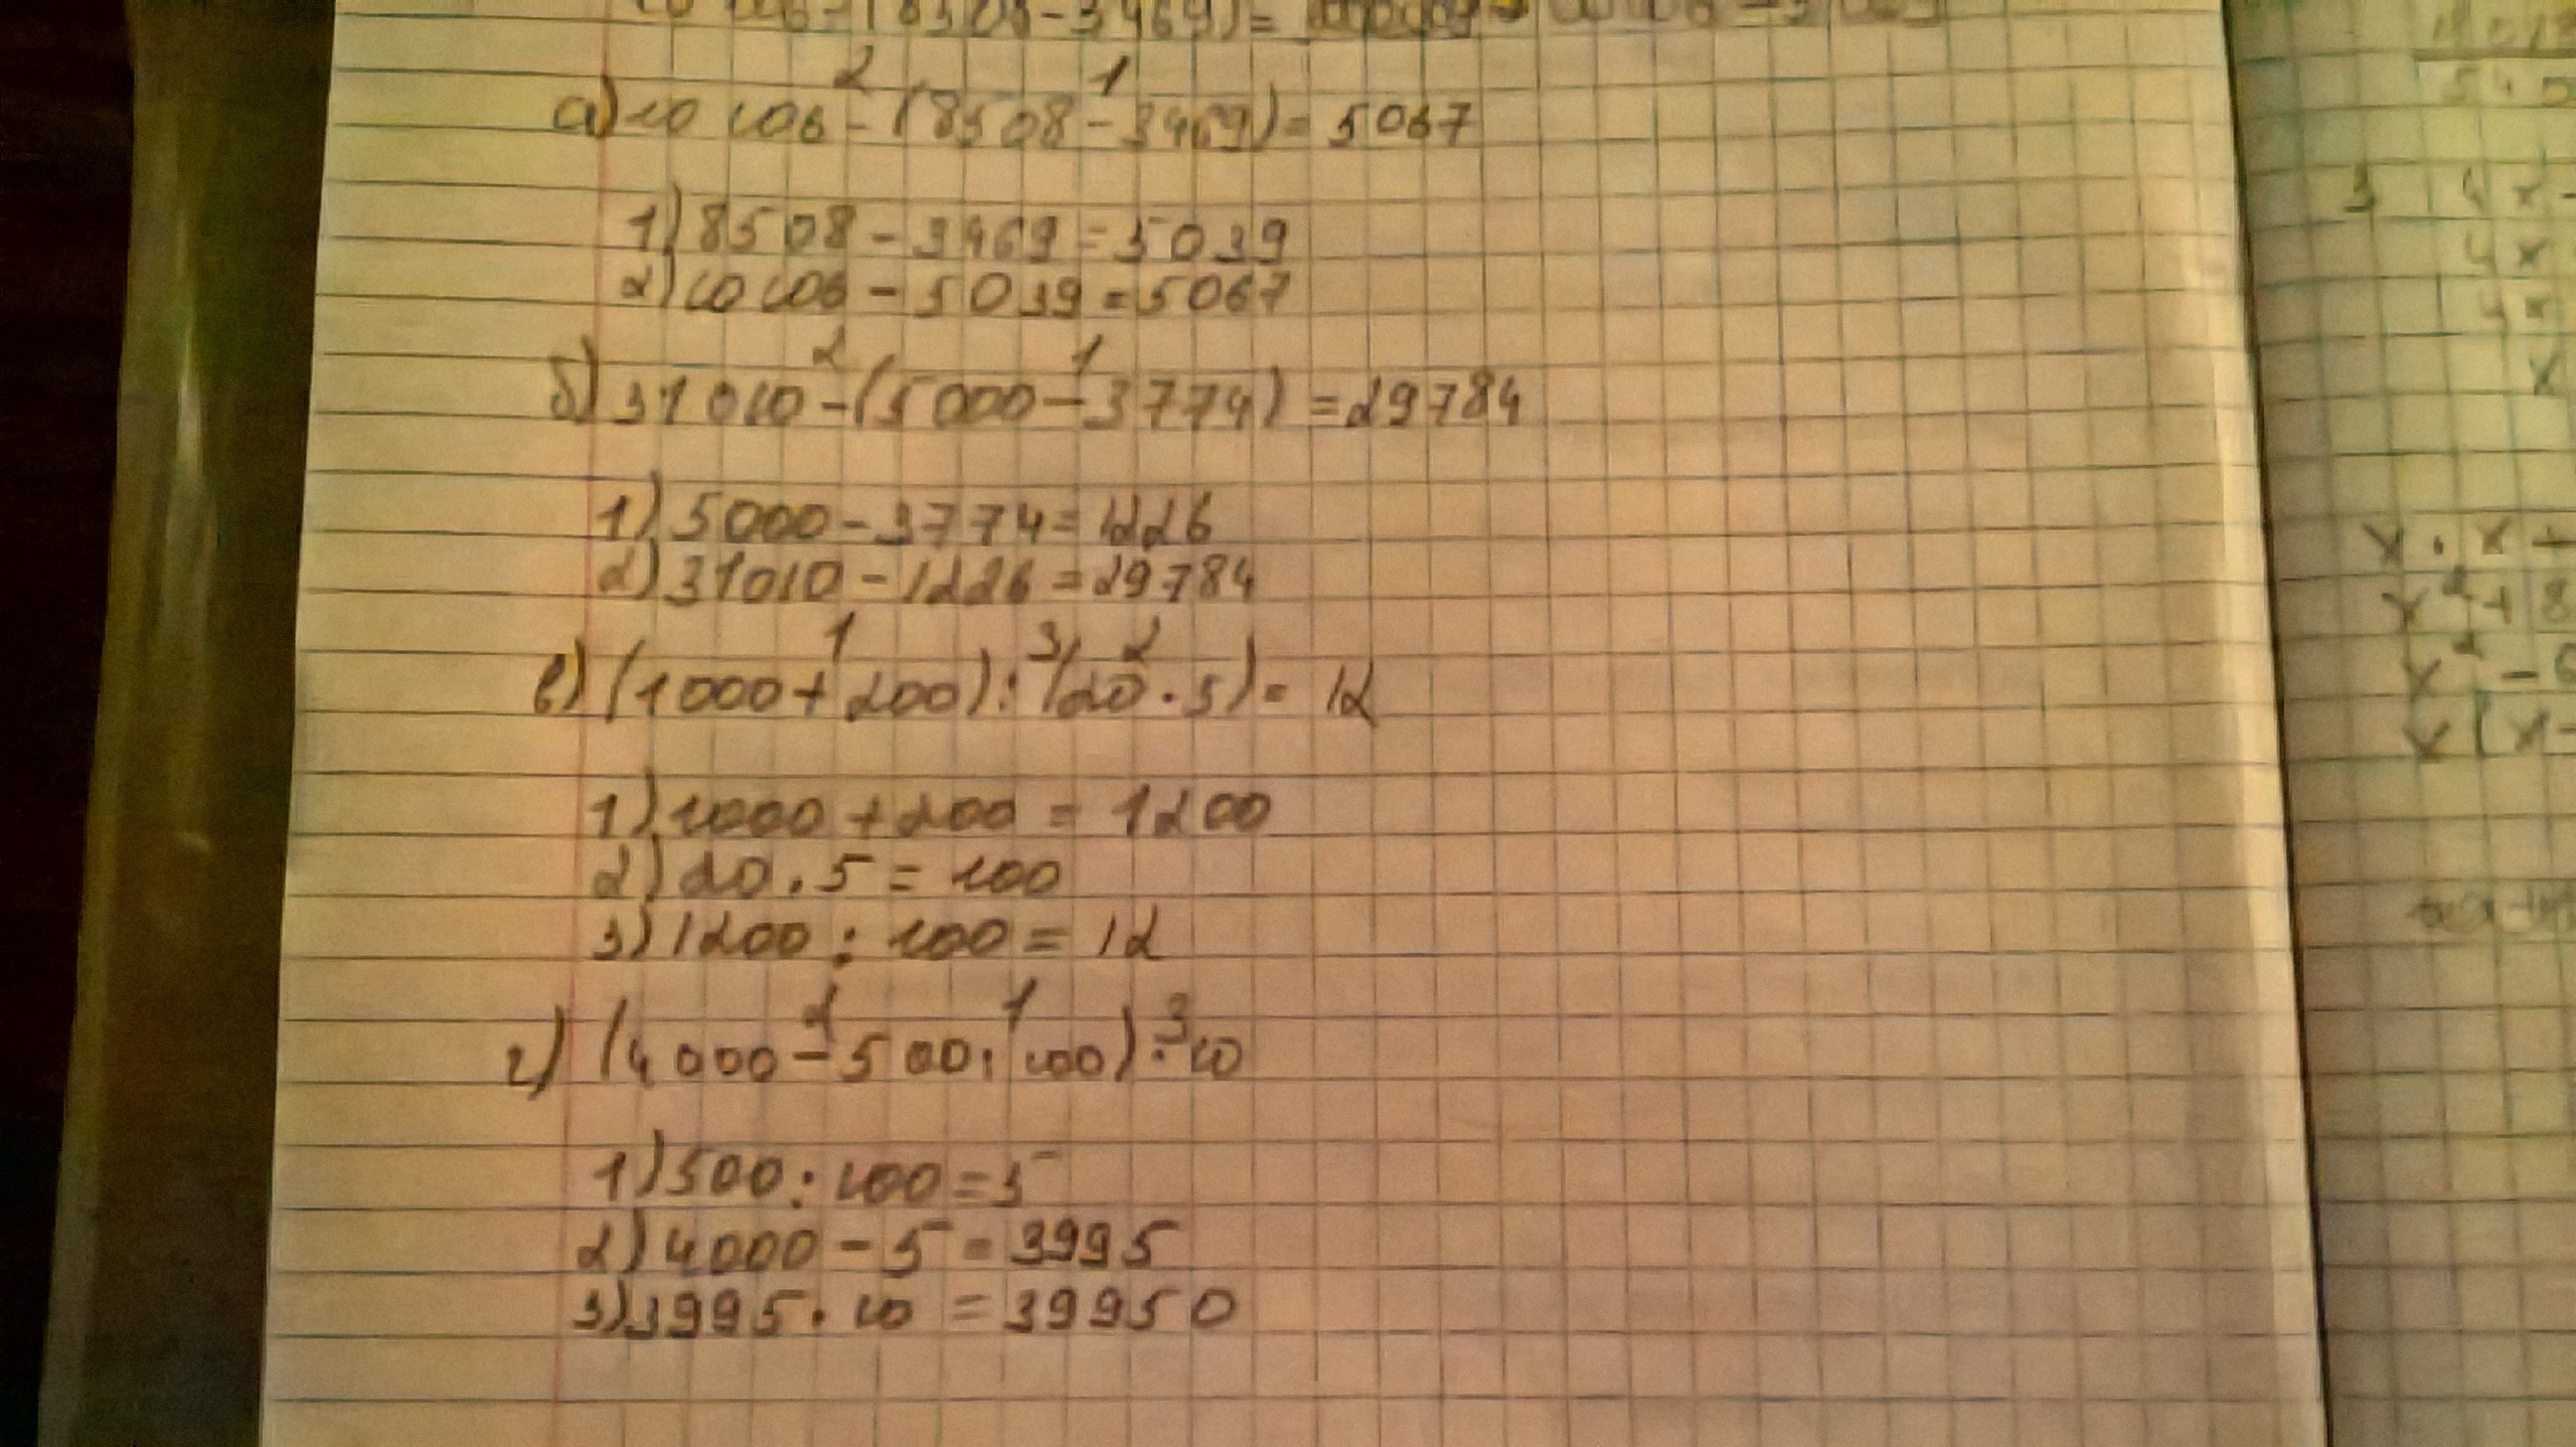 (8508-3469)=
2 1
а) 10 106 - (8508 - 3469) = 5067
1) 8508 - 3469 = 5039
2) 10 106 - 5039 = 5067
2 1
б) 31 010 - (5000 - 3774) = 29784
1) 5000 - 3774 = 1226
2) 31010 - 1226 = 29784
1 3 2
в) (1000 + 200) : (20 · 5) = 12
1) 1000 + 200 = 1200
2) 20 · 5 = 100
3) 1200 : 100 = 12
2 1 3
г) (4000 - 500 : 100) · 10
1) 500 : 100 = 5
2) 4000 - 5 = 3995
3) 3995 · 10 = 39950
3 4x -
4x
4x
x
x · x +
x² + 8
x² -
x (x -